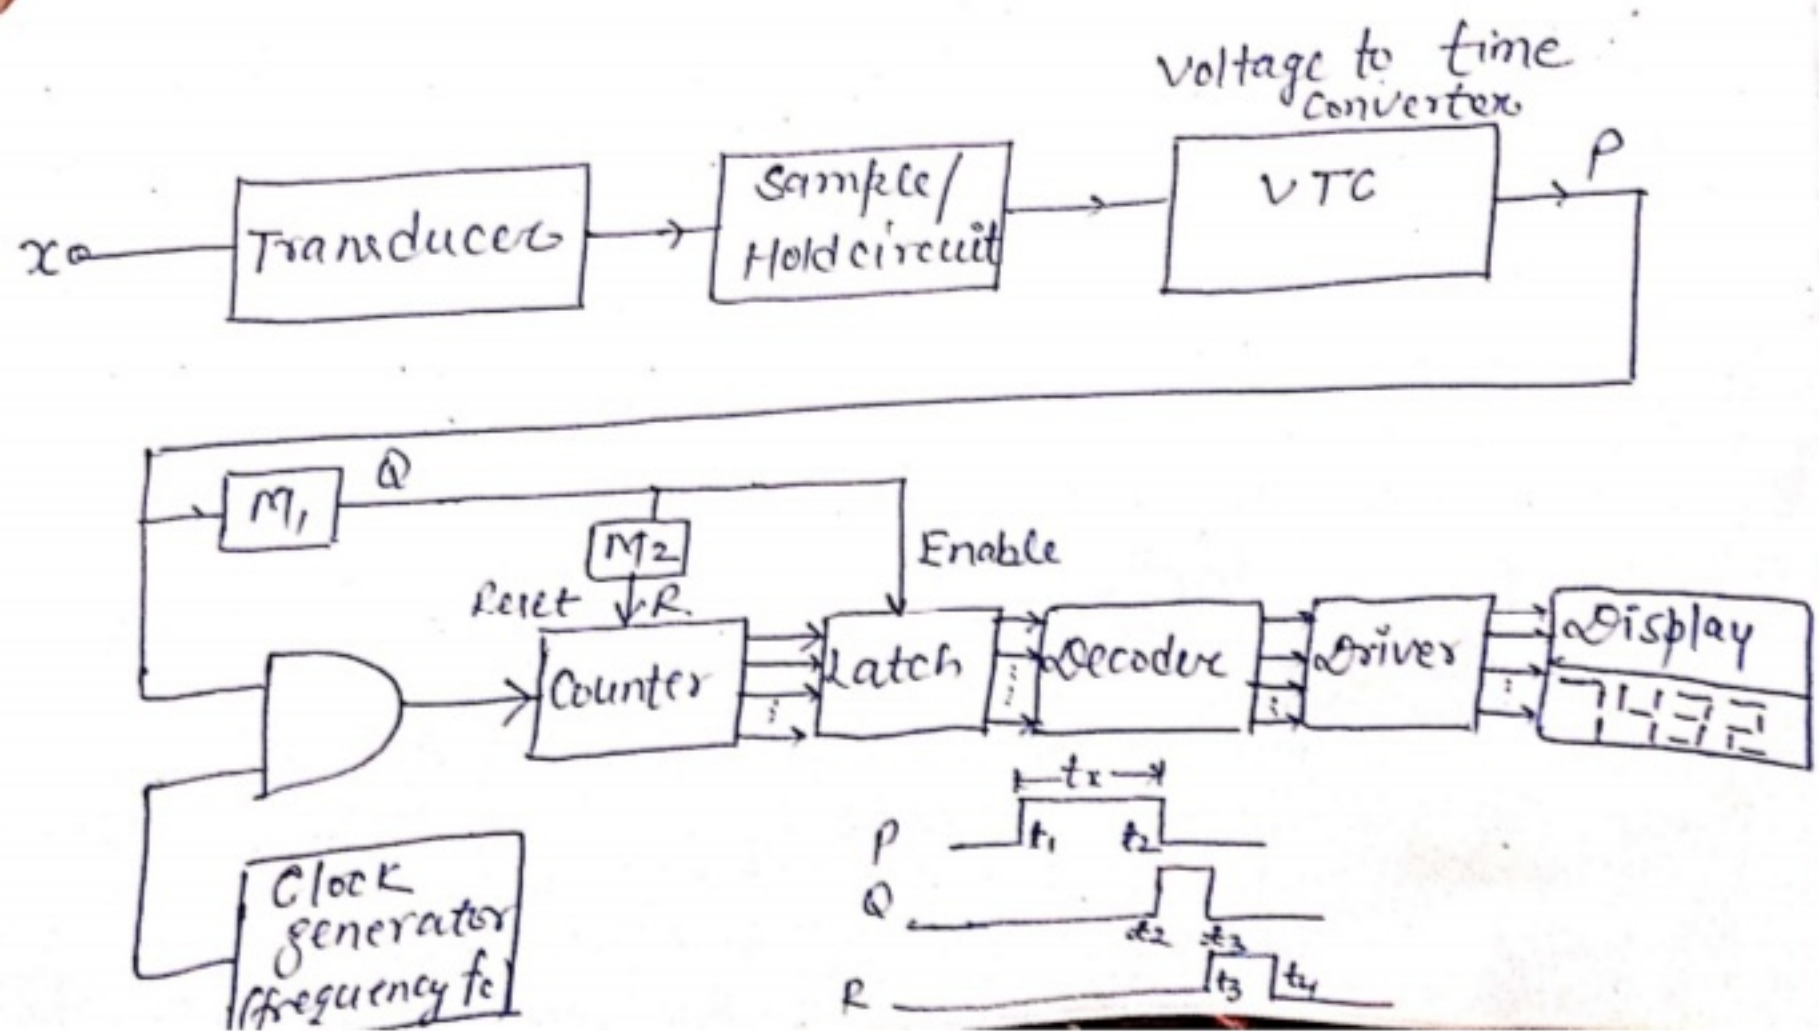 Voltage to time
converter
P
x
Transducer
Sample/
Hold circuit
VTC
Q
M1
M2
Enable
Reset
R.
Counter
Latch
Decoder
Driver
Display
7432
Clock
generator
(frequency fc)
tx
P
t1
t2
Q
t2
t3
R
t3
t4